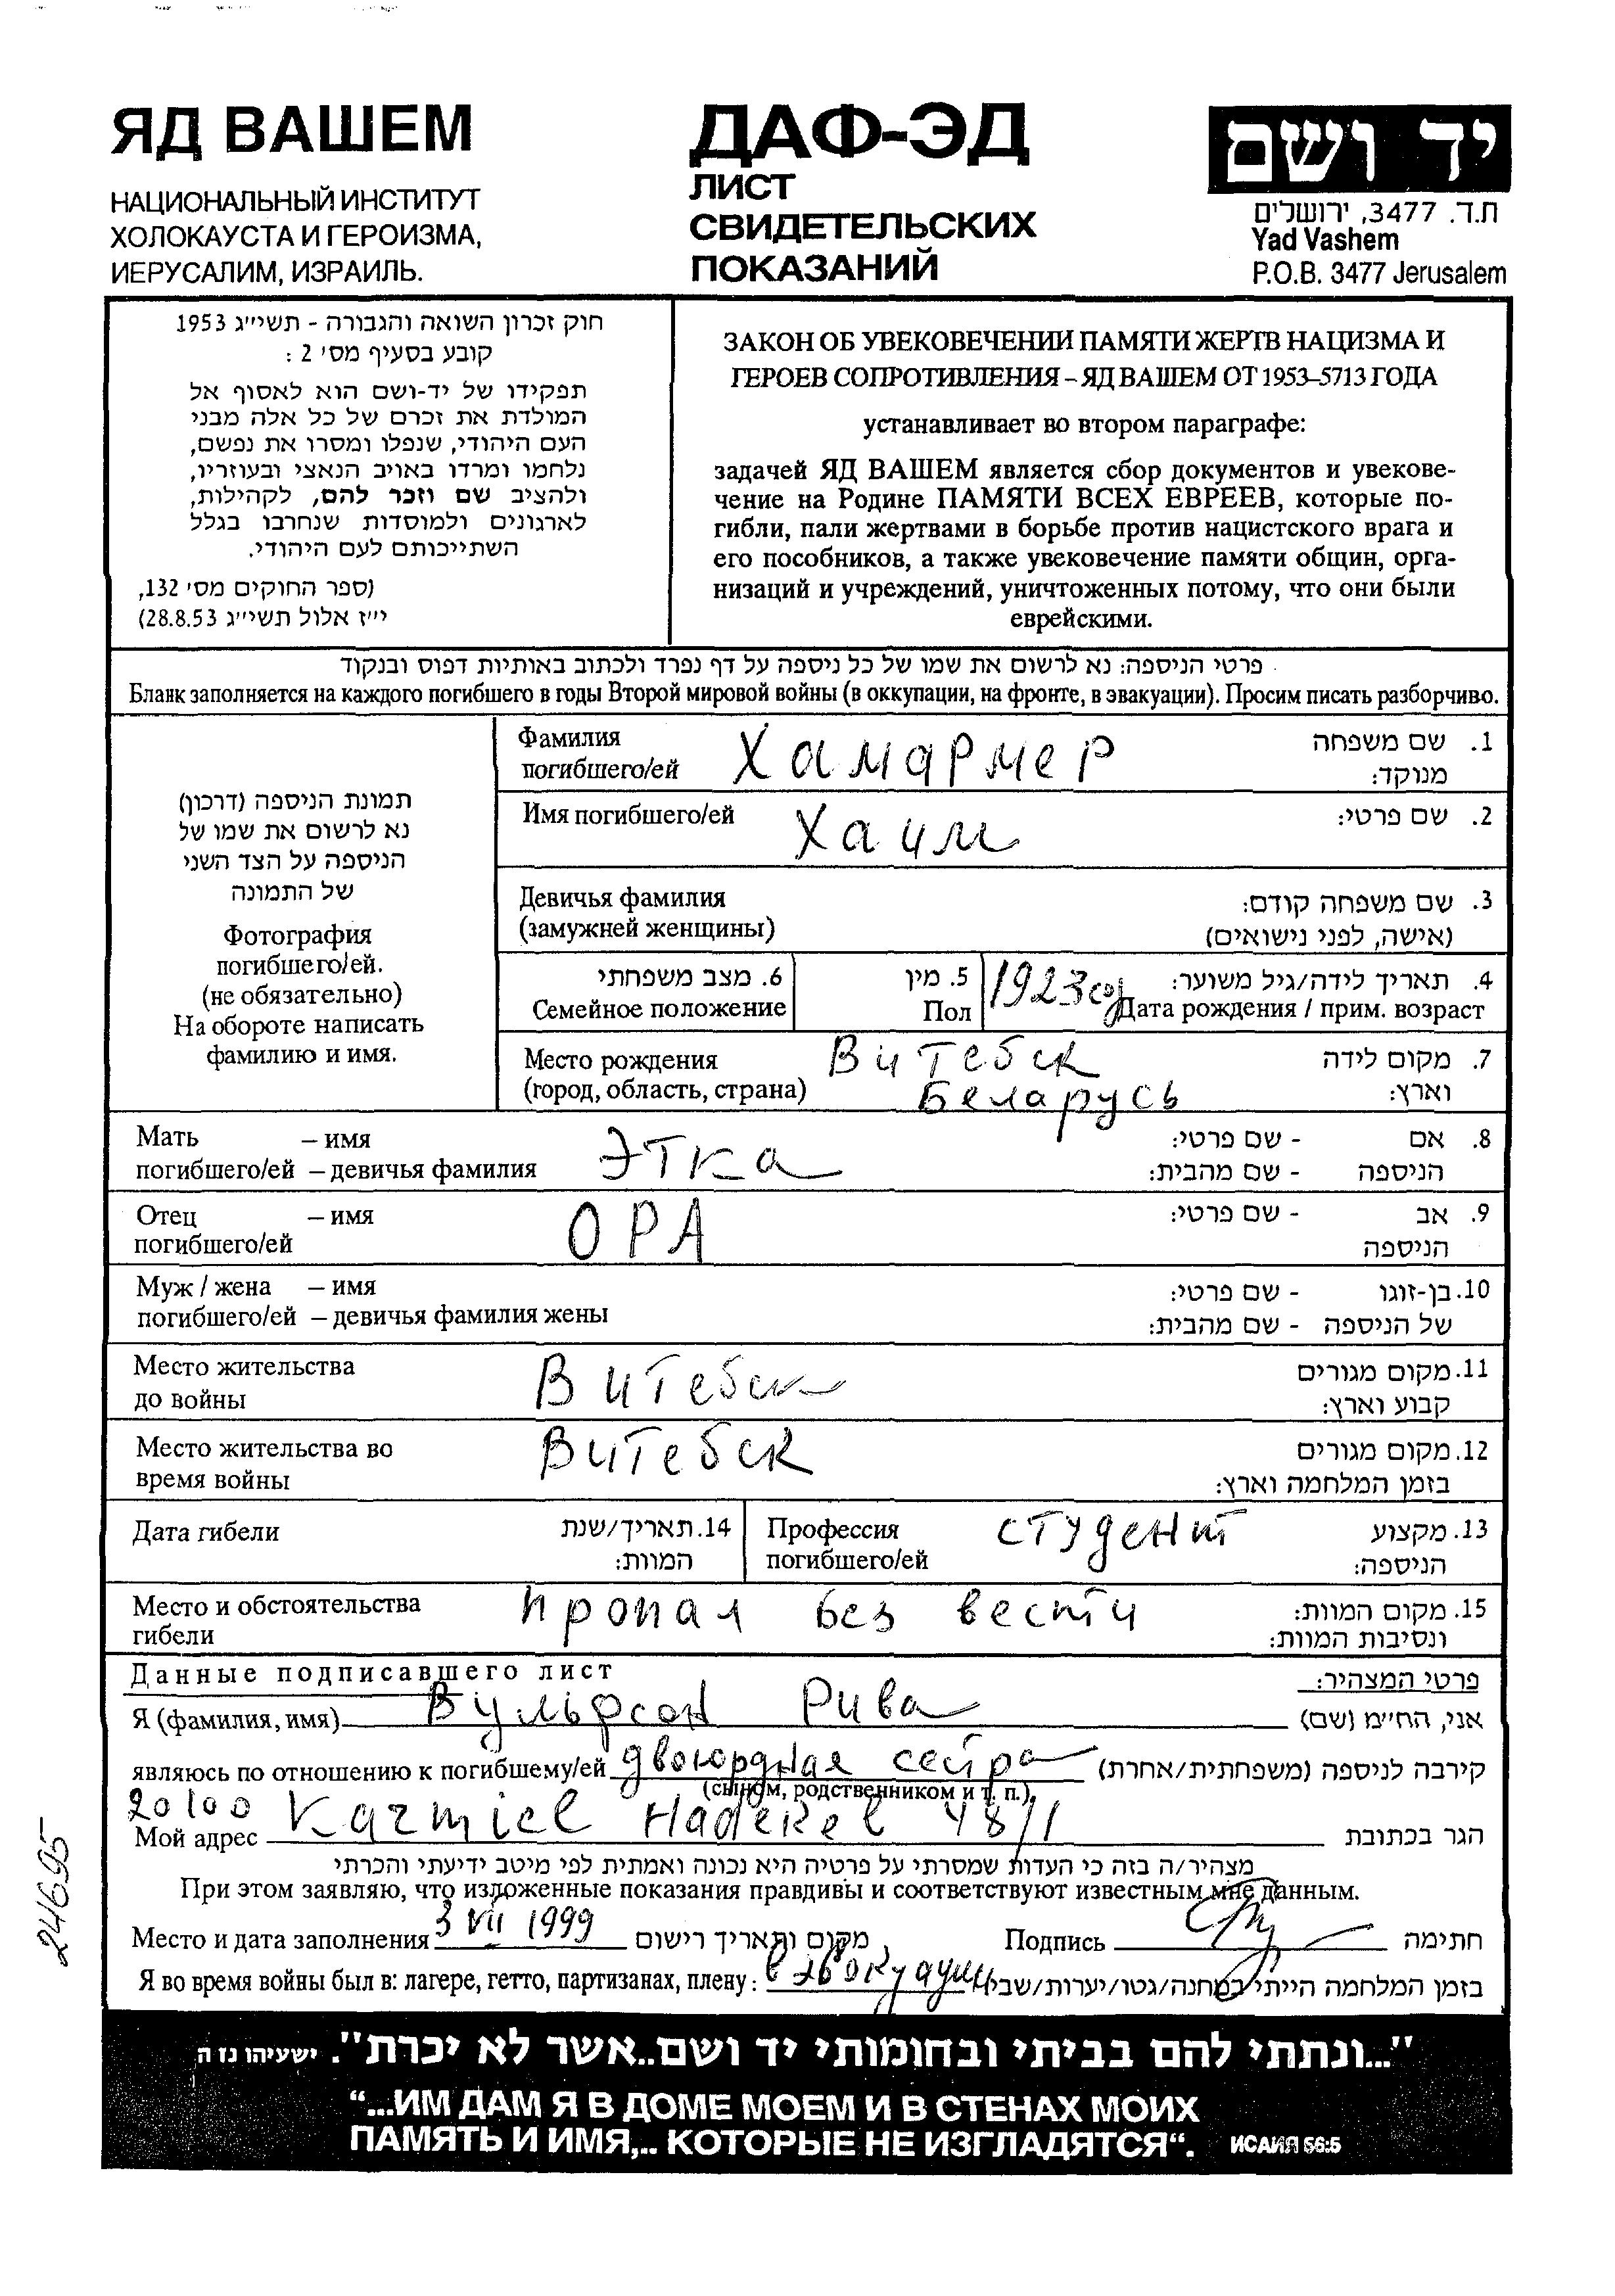 ЯД ВАШЕМ
НАЦИОНАЛЬНЫЙ ИНСТИТУТ
ХОЛОКАУСТА И ГЕРОИЗМА,
ИЕРУСАЛИМ, ИЗРАИЛЬ.
ДАФ-ЭД
ЛИСТ
СВИДЕТЕЛЬСКИХ
ПОКАЗАНИЙ
יד ושם
ת.ד. 3477, ירושלים
Yad Vashem
P.O.B. 3477 Jerusalem
חוק זכרון השואה והגבורה - תשי״ג 1953
קובע בסעיף מס׳ 2 :
תפקידו של יד-ושם הוא לאסוף אל
המולדת את זכרם של כל אלה מבני
העם היהודי, שנפלו ומסרו את נפשם,
נלחמו ומרדו באויב הנאצי ובעוזריו,
ולהציב שם וזכר להם, לקהילות,
לארגונים ולמוסדות שנחרבו בגלל
השתייכותם לעם היהודי.
(ספר החוקים מס׳ 132,
י״ז אלול תשי״ג 28.8.53)
ЗАКОН ОБ УВЕКОВЕЧЕНИИ ПАМЯТИ ЖЕРТВ НАЦИЗМА И
ГЕРОЕВ СОПРОТИВЛЕНИЯ – ЯД ВАШЕМ ОТ 1953–5713 ГОДА
устанавливает во втором параграфе:
задачей ЯД ВАШЕМ является сбор документов и увекове-
чение на Родине ПАМЯТИ ВСЕХ ЕВРЕЕВ, которые по-
гибли, пали жертвами в борьбе против нацистского врага и
его пособников, а также увековечение памяти общин, орга-
низаций и учреждений, уничтоженных потому, что они были
еврейскими.
פרטי הניספה: נא לרשום את שמו של כל ניספה על דף נפרד ולכתוב באותיות דפוס ובנקוד
Бланк заполняется на каждого погибшего в годы Второй мировой войны (в оккупации, на фронте, в эвакуации). Просим писать разборчиво.
תמונת הניספה (דרכון)
נא לרשום את שמו של
הניספה על הצד השני
של התמונה
Фотография
погибшего/ей.
(не обязательно)
На обороте написать
фамилию и имя.
Фамилия Хамармер 1. שם משפחה
погибшего/ей מנוקד:
Имя погибшего/ей Хаим 2. שם פרטי:
Девичья фамилия 3. שם משפחה קודם:
(замужней женщины) (אישה, לפני נישואים)
6. מצב משפחתי 5. מין 1923 год 4. תאריך לידה/גיל משוער:
Семейное положение Пол Дата рождения / прим. возраст
Место рождения Витебск 7. מקום לידה
(город, область, страна) Беларусь וארץ:
Мать – имя Этка 8. אם - שם פרטי:
погибшего/ей – девичья фамилия הניספה - שם מהבית:
Отец – имя ОРА 9. אב - שם פרטי:
погибшего/ей הניספה
Муж / жена – имя 10. בן-זוגו - שם פרטי:
погибшего/ей – девичья фамилия жены של הניספה - שם מהבית:
Место жительства Витебск 11. מקום מגורים
до войны קבוע וארץ:
Место жительства во Витебск 12. מקום מגורים
время войны בזמן המלחמה וארץ:
Дата гибели 14. תאריך/שנת Профессия студент 13. מקצוע
המוות: погибшего/ей הניספה:
Место и обстоятельства пропал без вести 15. מקום המוות:
гибели ונסיבות המוות:
Данные подписавшего лист פרטי המצהיר:
Я (фамилия, имя) Вульфсон Рива אני, החי״מ (שם)
являюсь по отношению к погибшему/ей двоюрдная сестра קירבה לניספה (משפחתית/אחרת)
(сыном, родственником и т. п.)
20100 Karmiel Hadekel 48/1
Мой адрес הגר בכתובת
מצהיר/ה בזה כי העדות שמסרתי על פרטיה היא נכונה ואמתית לפי מיטב ידיעתי והכרתי
При этом заявляю, что изложенные показания правдивы и соответствуют известным мне данным.
Место и дата заполнения 3 VII 1999 מקום ותאריך רישום Подпись חתימה
Я во время войны был в: лагере, гетто, партизанах, плену: в эвокуации בזמן המלחמה הייתי במחנה/גטו/יערות/שבי:
24695
"...ונתתי להם בביתי ובחומותי יד ושם..אשר לא יכרת". ישעיהו נז ה
“...ИМ ДАМ Я В ДОМЕ МОЕМ И В СТЕНАХ МОИХ
ПАМЯТЬ И ИМЯ,.. КОТОРЫЕ НЕ ИЗГЛАДЯТСЯ“. ИСАИЯ 56:5